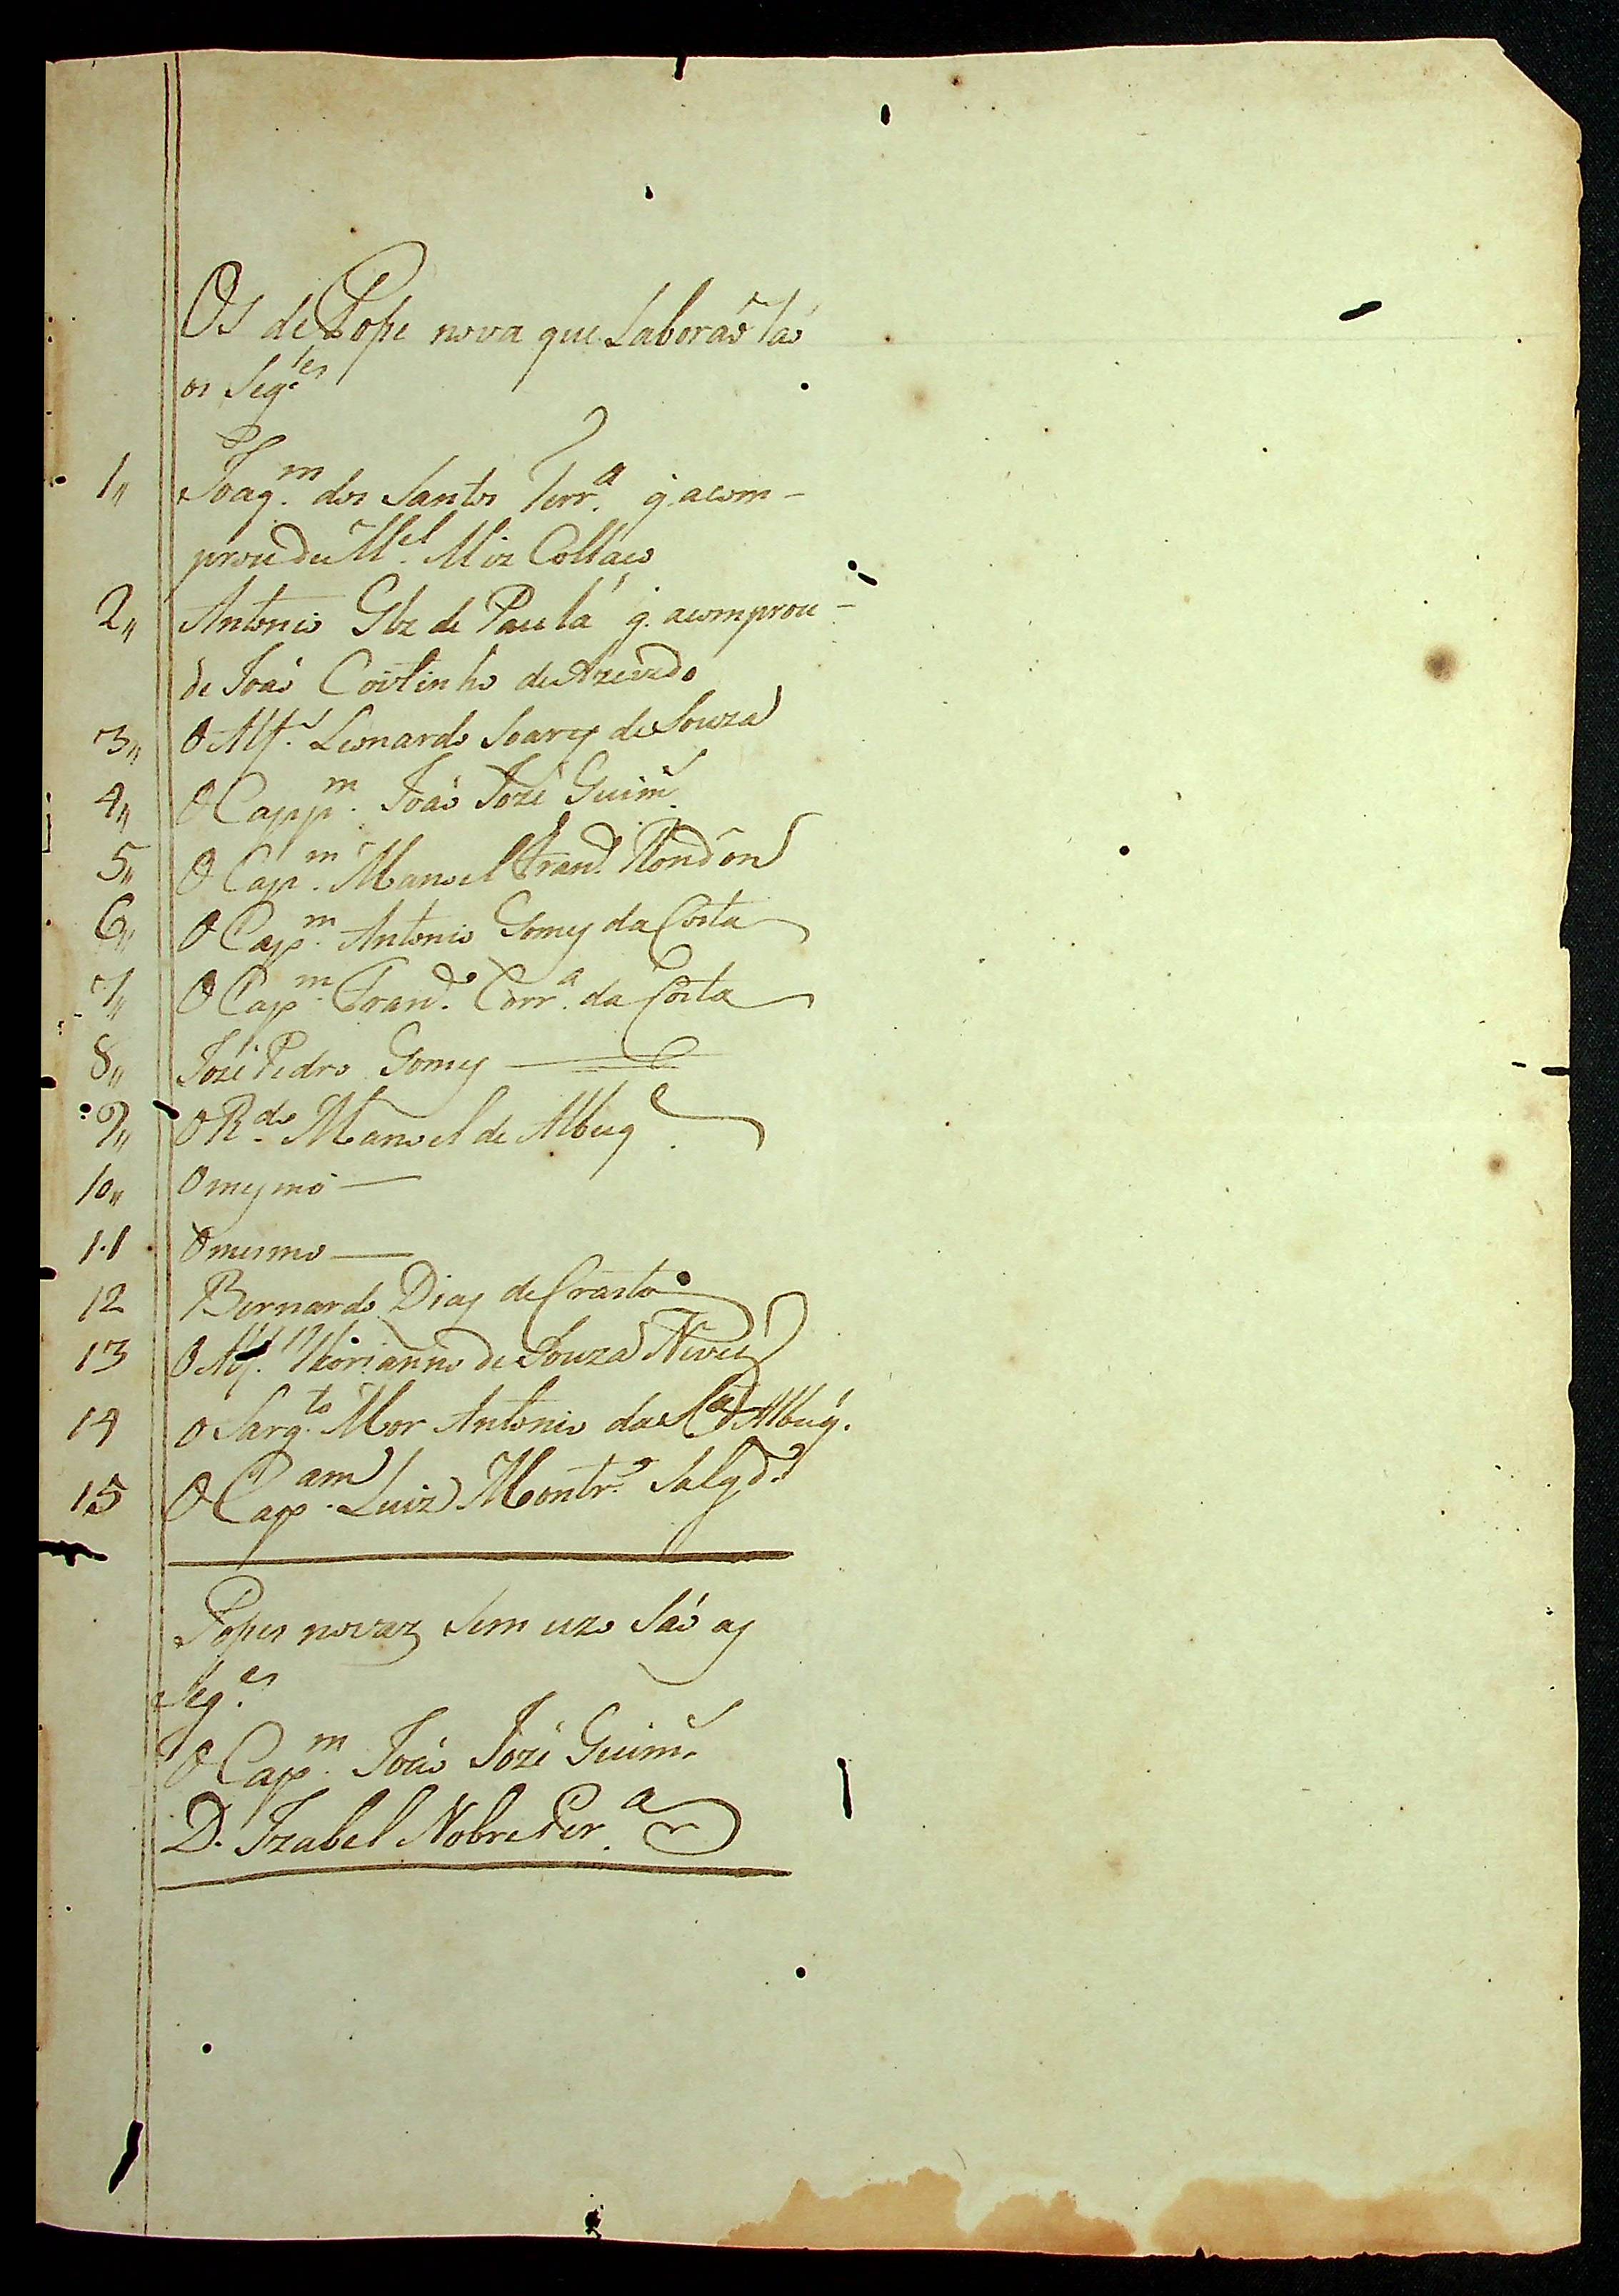 Os de Posse nova que Laborão São
os Seg.tes
1,, Joaq.m dos Santos Ferr.a q acom-
prou de M.el Miz Collaço
2,, Antonio Glz de Paula q. acomprou-
de João Coitinho de Azevedo
3,, O Alf.s Leonardo Soares de Souza
4,, O Capp.m João Jozé Guim.s
5,, O Cap.m Manoel Fran.co Rondon
6,, O Cap.m Antonio Gomes da Costa
7,, O Cap.m Fran.co Corr.a da Costa
8,, Jozé Pedro Gomes
9,, O R.do Manoel de Albuq.e
10,, O mesmo —
11 O mesmo —
12 Bernardo Dias de Crasto
13 O Alf.s de Souza Neves
14 O Sarg.to Mor Antonio da S.a Albuq.
15 O Cap.am Luiz Montr.o Salg.do
Posses novas sem uzo São as
Seg.es
O Cap.m João Jozé Guim.s
D. Izabel Nobre Per.a